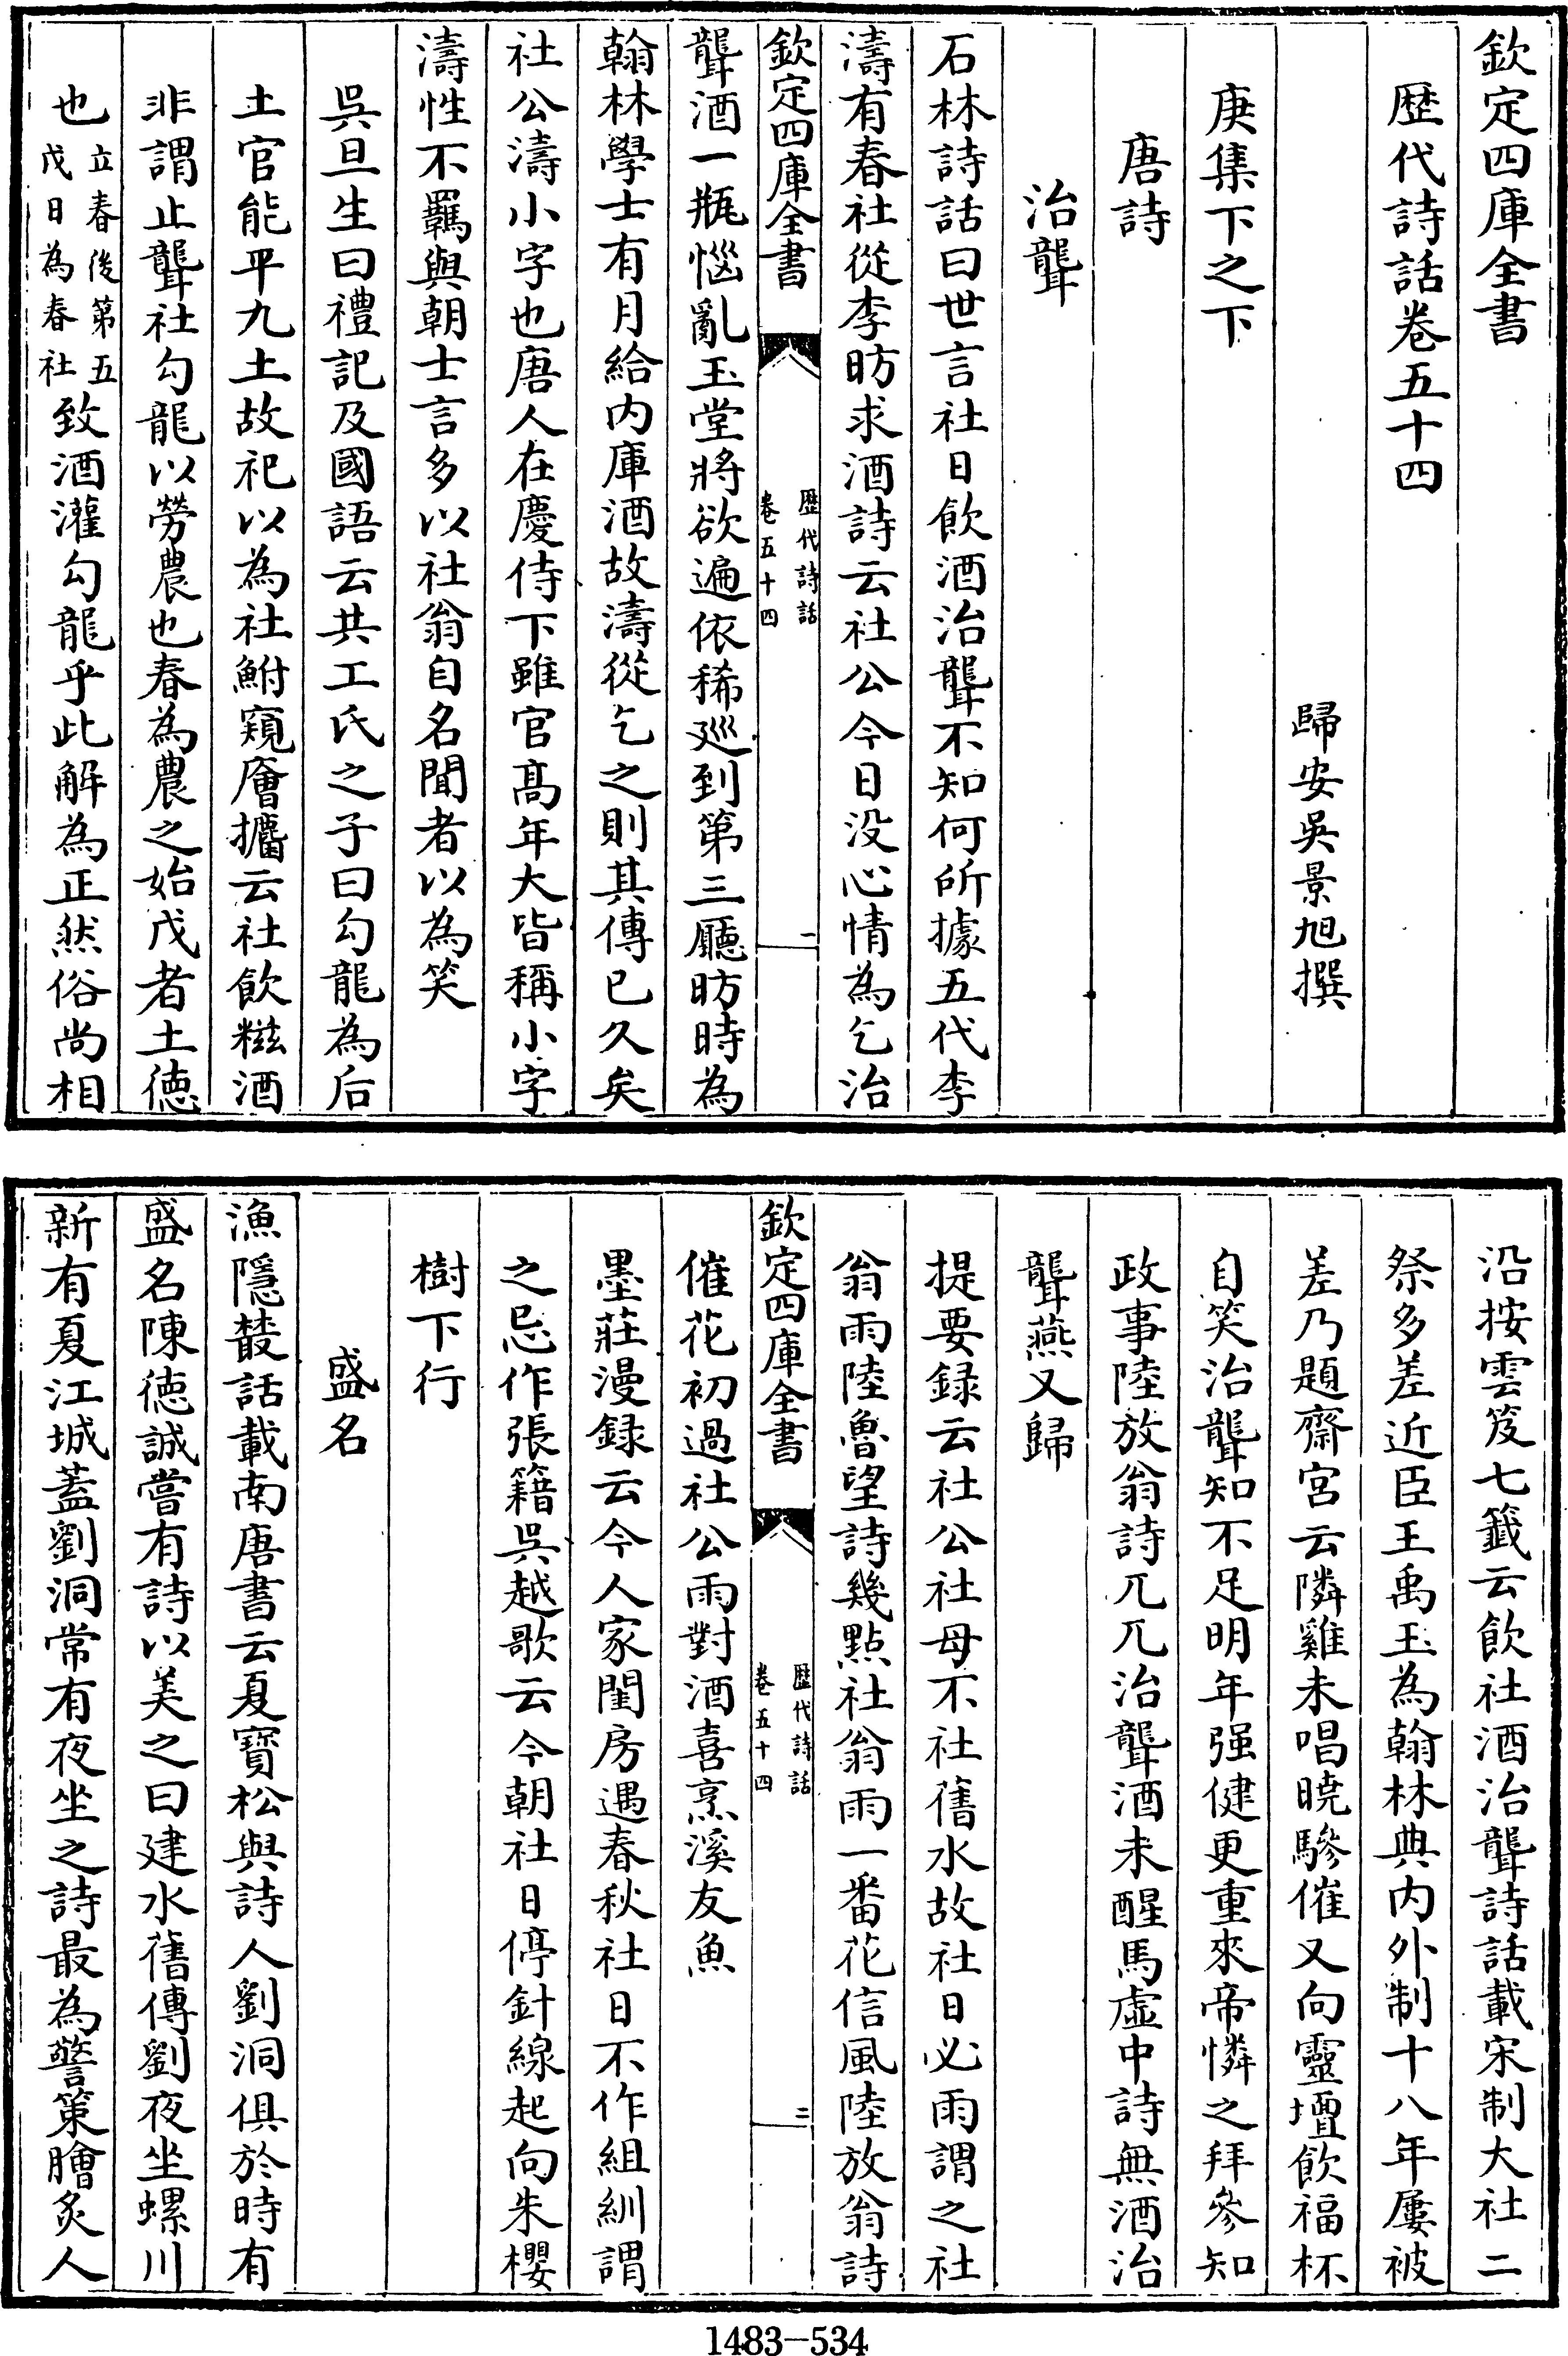 欽定四庫全書
歴代詩話卷五十四
歸安吳景旭撰
庚集下之下
唐詩
治聾
石林詩話曰世言社日飲酒治聾不知何所據五代李
濤有春社從李昉求酒詩云社公今日没心情為乞治
欽定四庫全書
歴代詩話
卷五十四
一
聾酒一瓶惱亂玉堂將欲遍依稀廵到第三廳昉時為
翰林學士有月給内庫酒故濤從乞之則其傳已久矣
社公濤小字也唐人在慶侍下雖官髙年大皆稱小字
濤性不羈與朝士言多以社翁自名聞者以為笑
吳旦生曰禮記及國語云共工氏之子曰勾龍為后
土官能平九土故祀以為社鮒窺廥㩗云社飲糍酒
非謂止聾社勾龍以勞農也春為農之始戊者土徳
也立春後第五戊日為春社致酒灌勾龍乎此解為正然俗尚相
沿按雲笈七籖云飲社酒治聾詩話載宋制大社二
祭多差近臣王禹玉為翰林典内外制十八年屢被
差乃題齋宫云隣雞未唱曉驂催又向靈壇飲福杯
自笑治聾知不足明年强健更重來帝憐之拜參知
政事陸放翁詩兀兀治聾酒未醒馬虚中詩無酒治
聾燕又歸
提要録云社公社母不社舊水故社日必雨謂之社
翁雨陸魯望詩幾點社翁雨一番花信風陸放翁詩
欽定四庫全書
歴代詩話
卷五十四
二
催花初過社公雨對酒喜烹溪友魚
墨莊漫録云今人家閨房遇春秋社日不作組紃謂
之忌作張籍吳越歌云今朝社日停針線起向朱櫻
樹下行
盛名
漁隱䕺話載南唐書云夏寳松與詩人劉洞俱於時有
盛名陳徳誠嘗有詩以美之曰建水舊傳劉夜坐螺川
新有夏江城蓋劉洞常有夜坐之詩最為警策膾炙人
1483-534